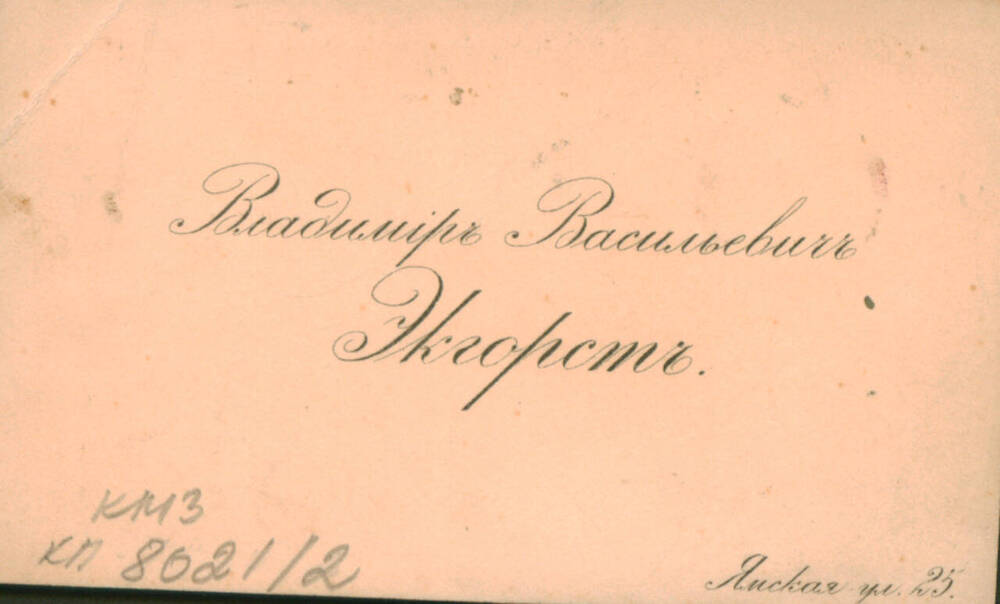 Владиміръ Васильевичъ
Экгорстъ.
КМЗ
КП 8021/2
Ямская ул. 25.